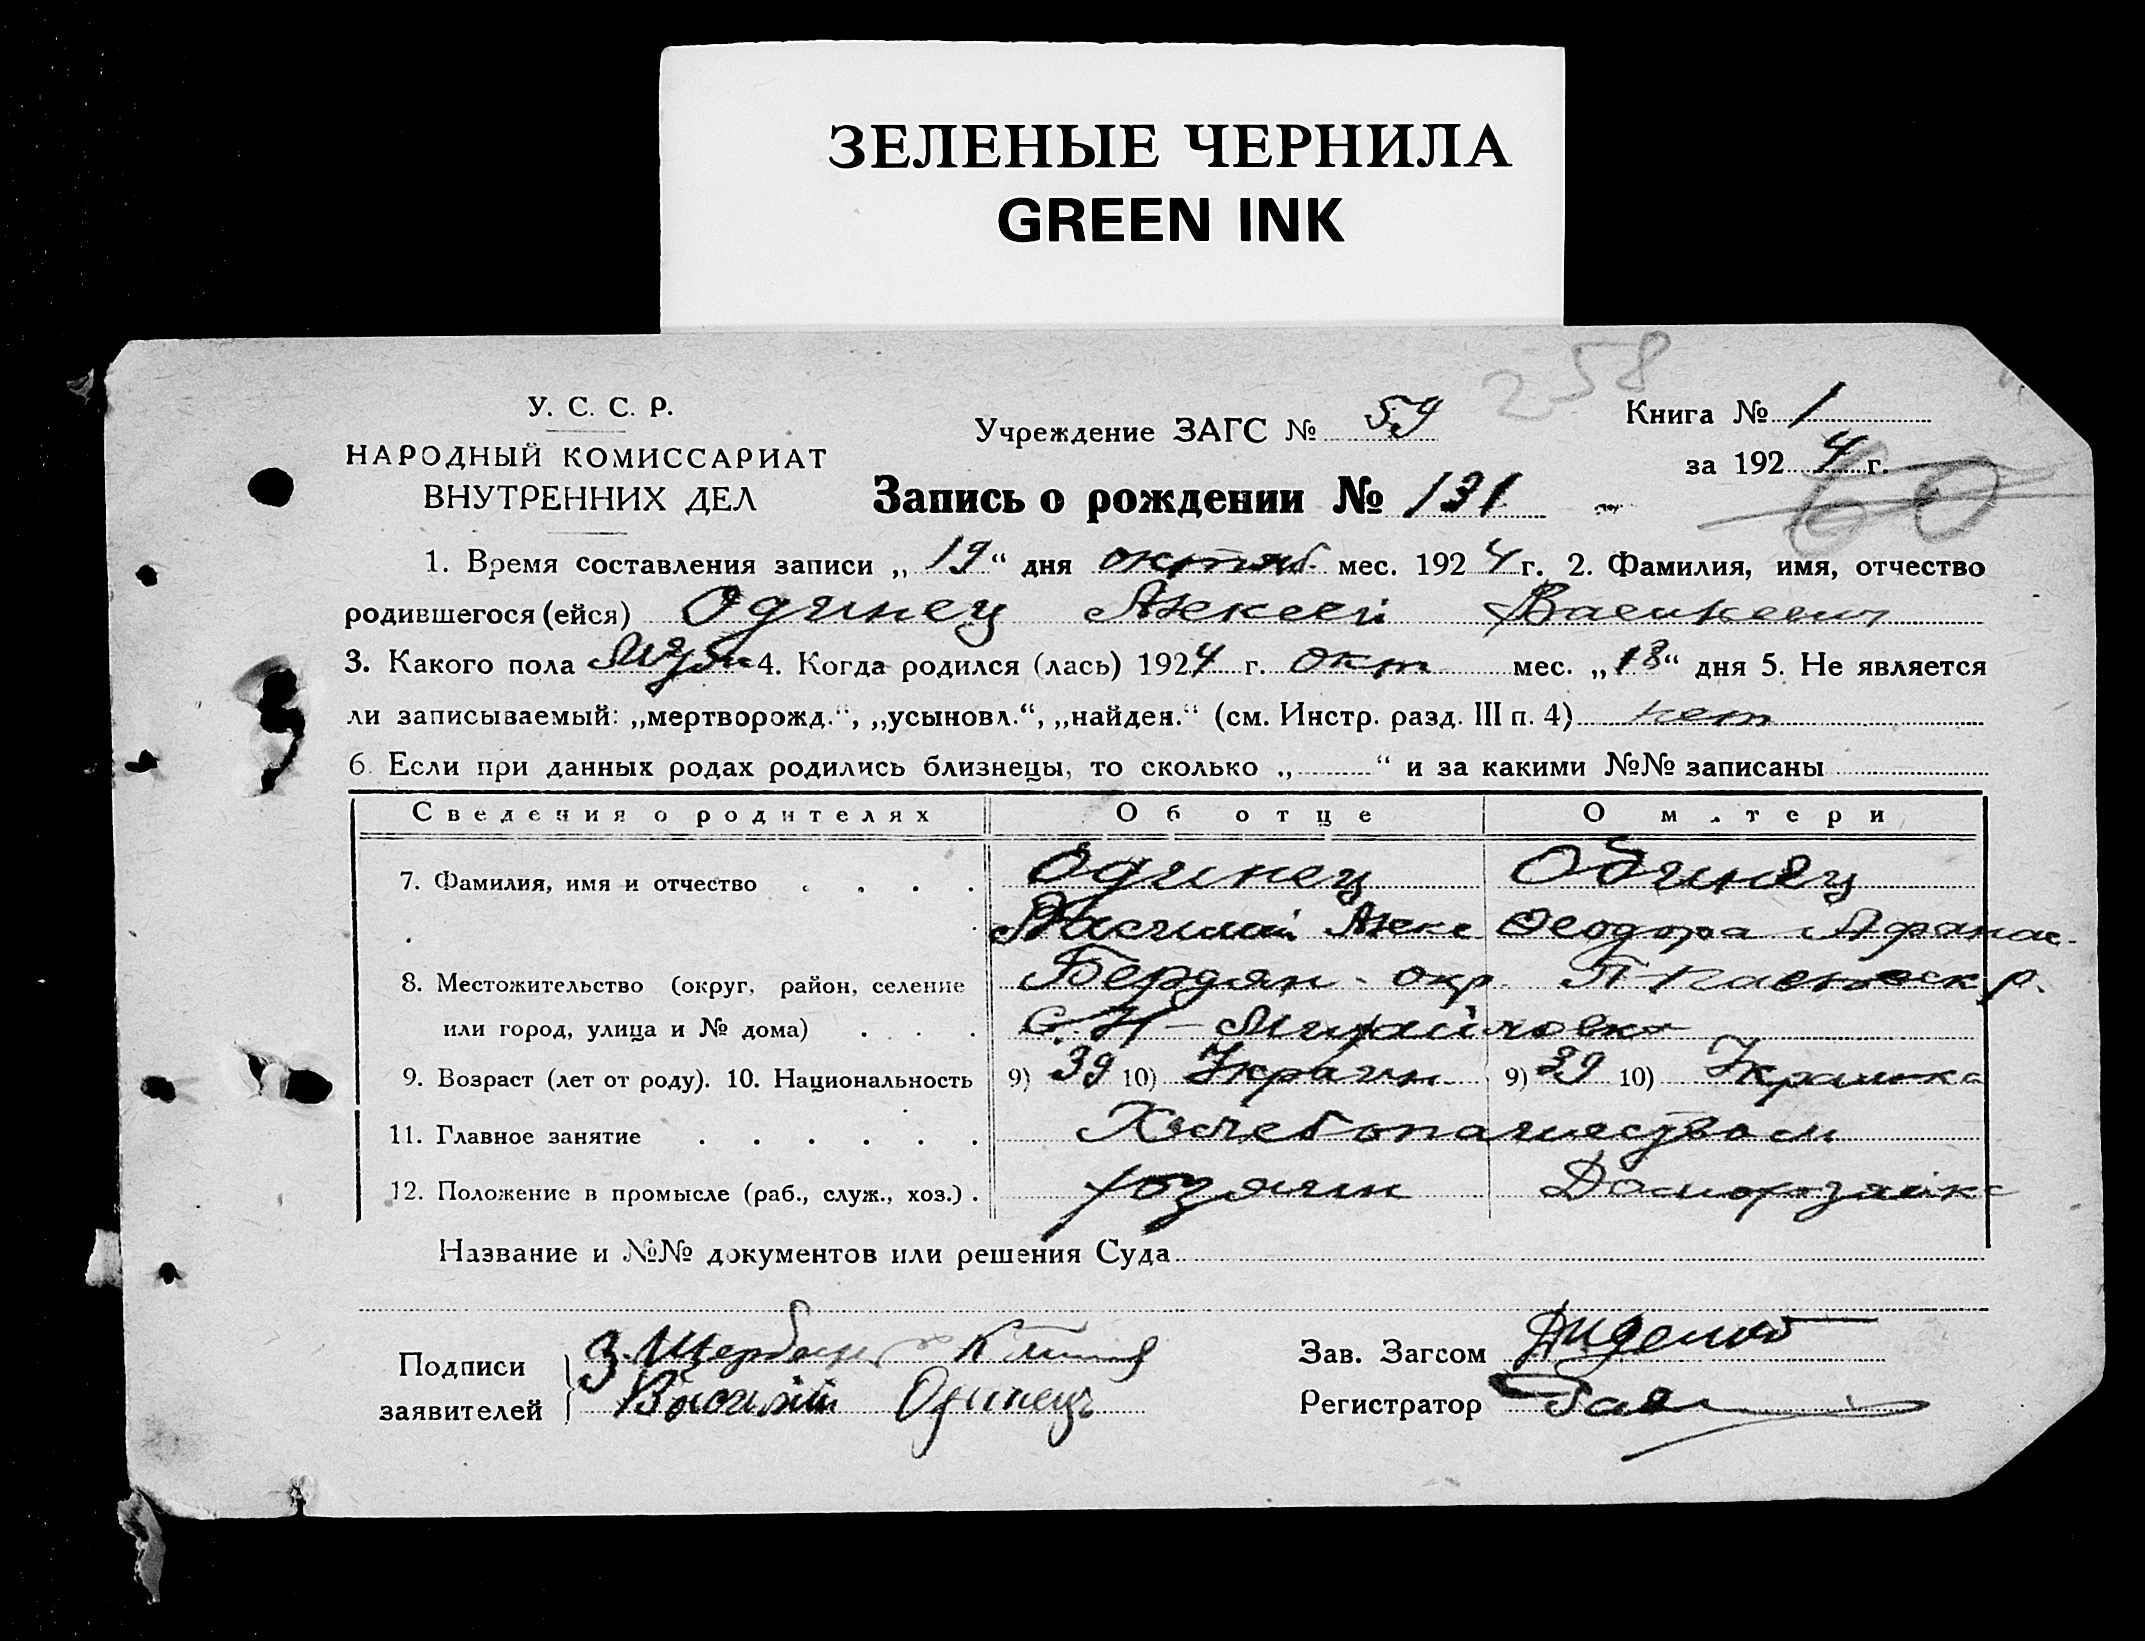 ЗЕЛЕНЫЕ ЧЕРНИЛА
GREEN INK
258
У. С. С. Р.
НАРОДНЫЙ КОМИССАРИАТ
ВНУТРЕННИХ ДЕЛ
Учреждение ЗАГС № 59
Книга № 1
за 1924 г.
60
Запись о рождении № 131
1. Время составления записи „19“ дня октяб. мес. 1924 г. 2. Фамилия, имя, отчество
родившегося (ейся) Одинец Алексей Васильевич
3. Какого пола Муж 4. Когда родился (лась) 1924 г. окт мес. „18“ дня 5. Не является
ли записываемый: „мертворожд.“, „усыновл.“, „найден.“ (см. Инстр. разд. III п. 4) нет
6. Если при данных родах родились близнецы, то сколько „.........“ и за какими №№ записаны
Сведения о родителях Об отце О матери
7. Фамилия, имя и отчество . . . . Одинец Одинец
Василий Алекс Феодора Афанас.
8. Местожительство (округ, район, селение Бердян. окр.
или город, улица и № дома) . . . С. Н-Михайловка
9. Возраст (лет от роду). 10. Национальность 9) 39 10) Украин 9) 39 10) Украинка
11. Главное занятие . . . . . . Хлебопашеством
12. Положение в промысле (раб., служ., хоз.) . хозяин Домохозяйка
Название и №№ документов или решения Суда
Подписи
заявителей
Василий Одинец
Зав. Загсом Диденко
Регистратор